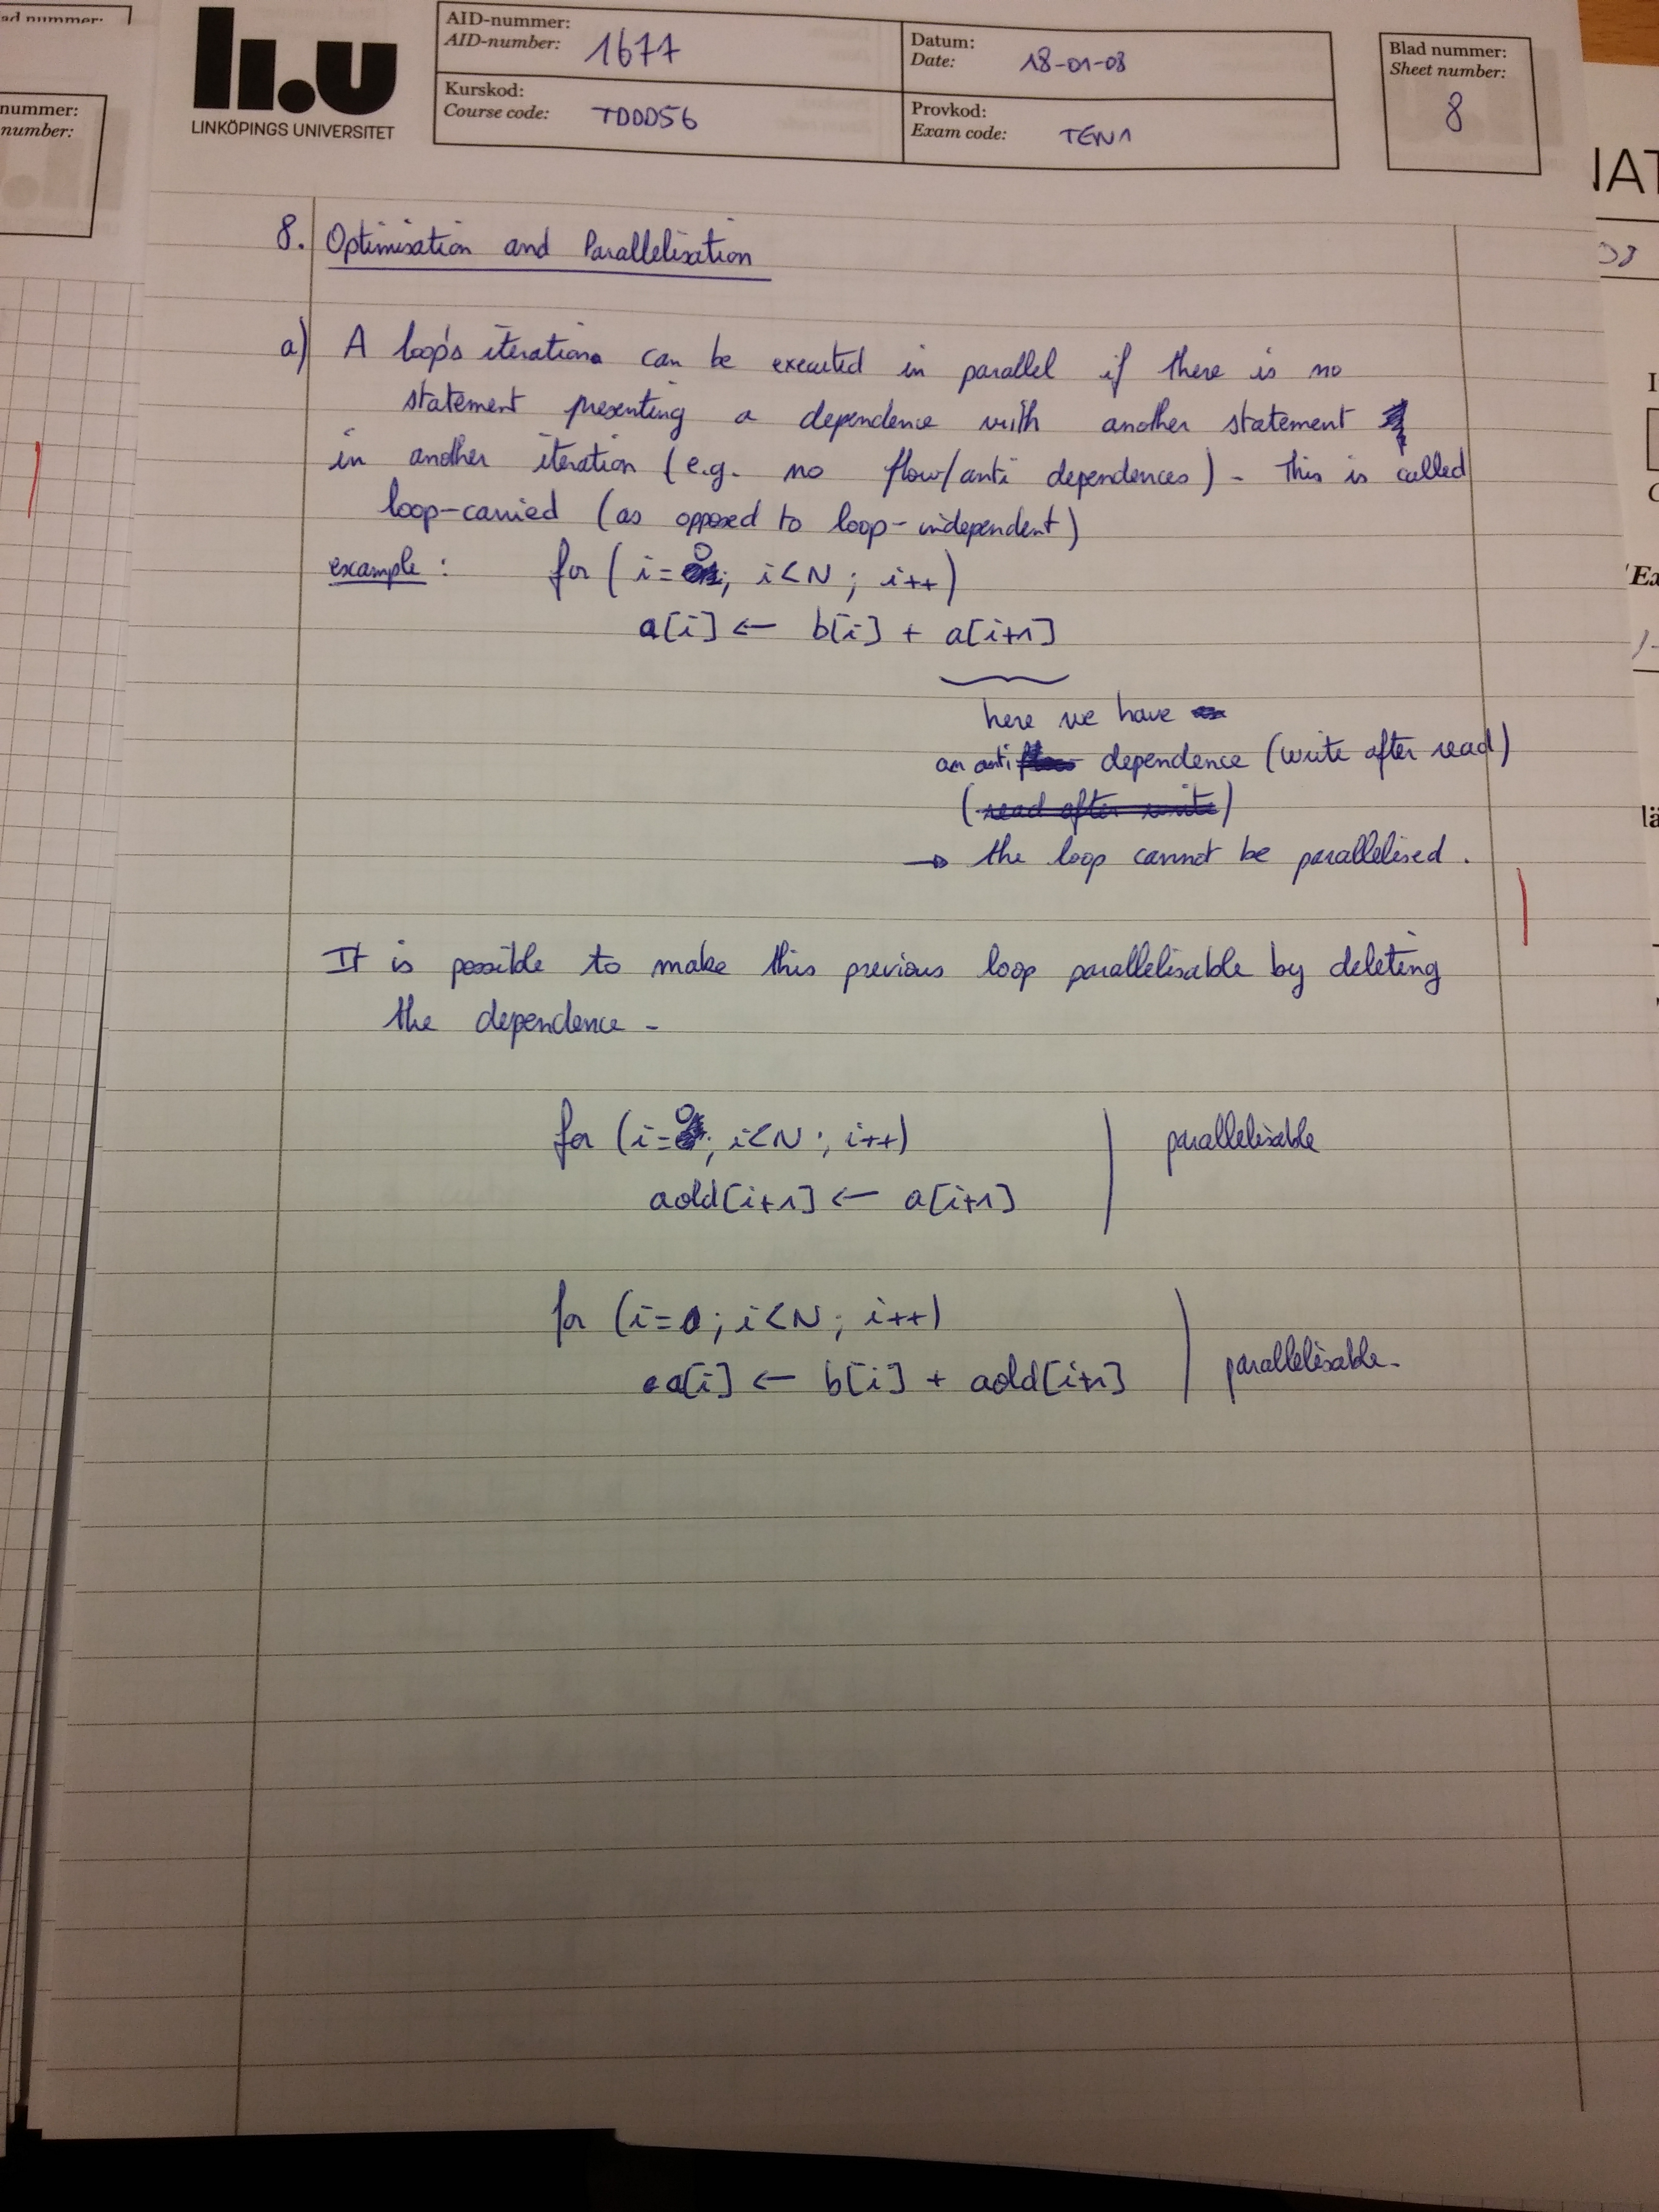 ad nummer:
nummer:
number:
li.u
LINKÖPINGS UNIVERSITET
AID-nummer:
AID-number: 1677
Datum:
Date: 18-01-08
Kurskod:
Course code: TDDD56
Provkod:
Exam code: TEN1
Blad nummer:
Sheet number:
8
IAT
8. Optimisation and Parallelisation
a) A loop's iterations can be executed in parallel if there is no
statement presenting a dependence with another statement
in another iteration (e.g. no flow/anti dependences). This is called
loop-carried (as opposed to loop-independent)
example: for (i=0; i<N; i++)
a[i] ← b[i] + a[i+1]
here we have
an anti dependence (write after read)
(read after write)
→ the loop cannot be parallelised.
It is possible to make this previous loop parallelisable by deleting
the dependence.
for (i=0; i<N; i++) parallelisable
aold[i+1] ← a[i+1]
for (i=0; i<N; i++)
a[i] ← b[i] + aold[i+1] parallelisable.